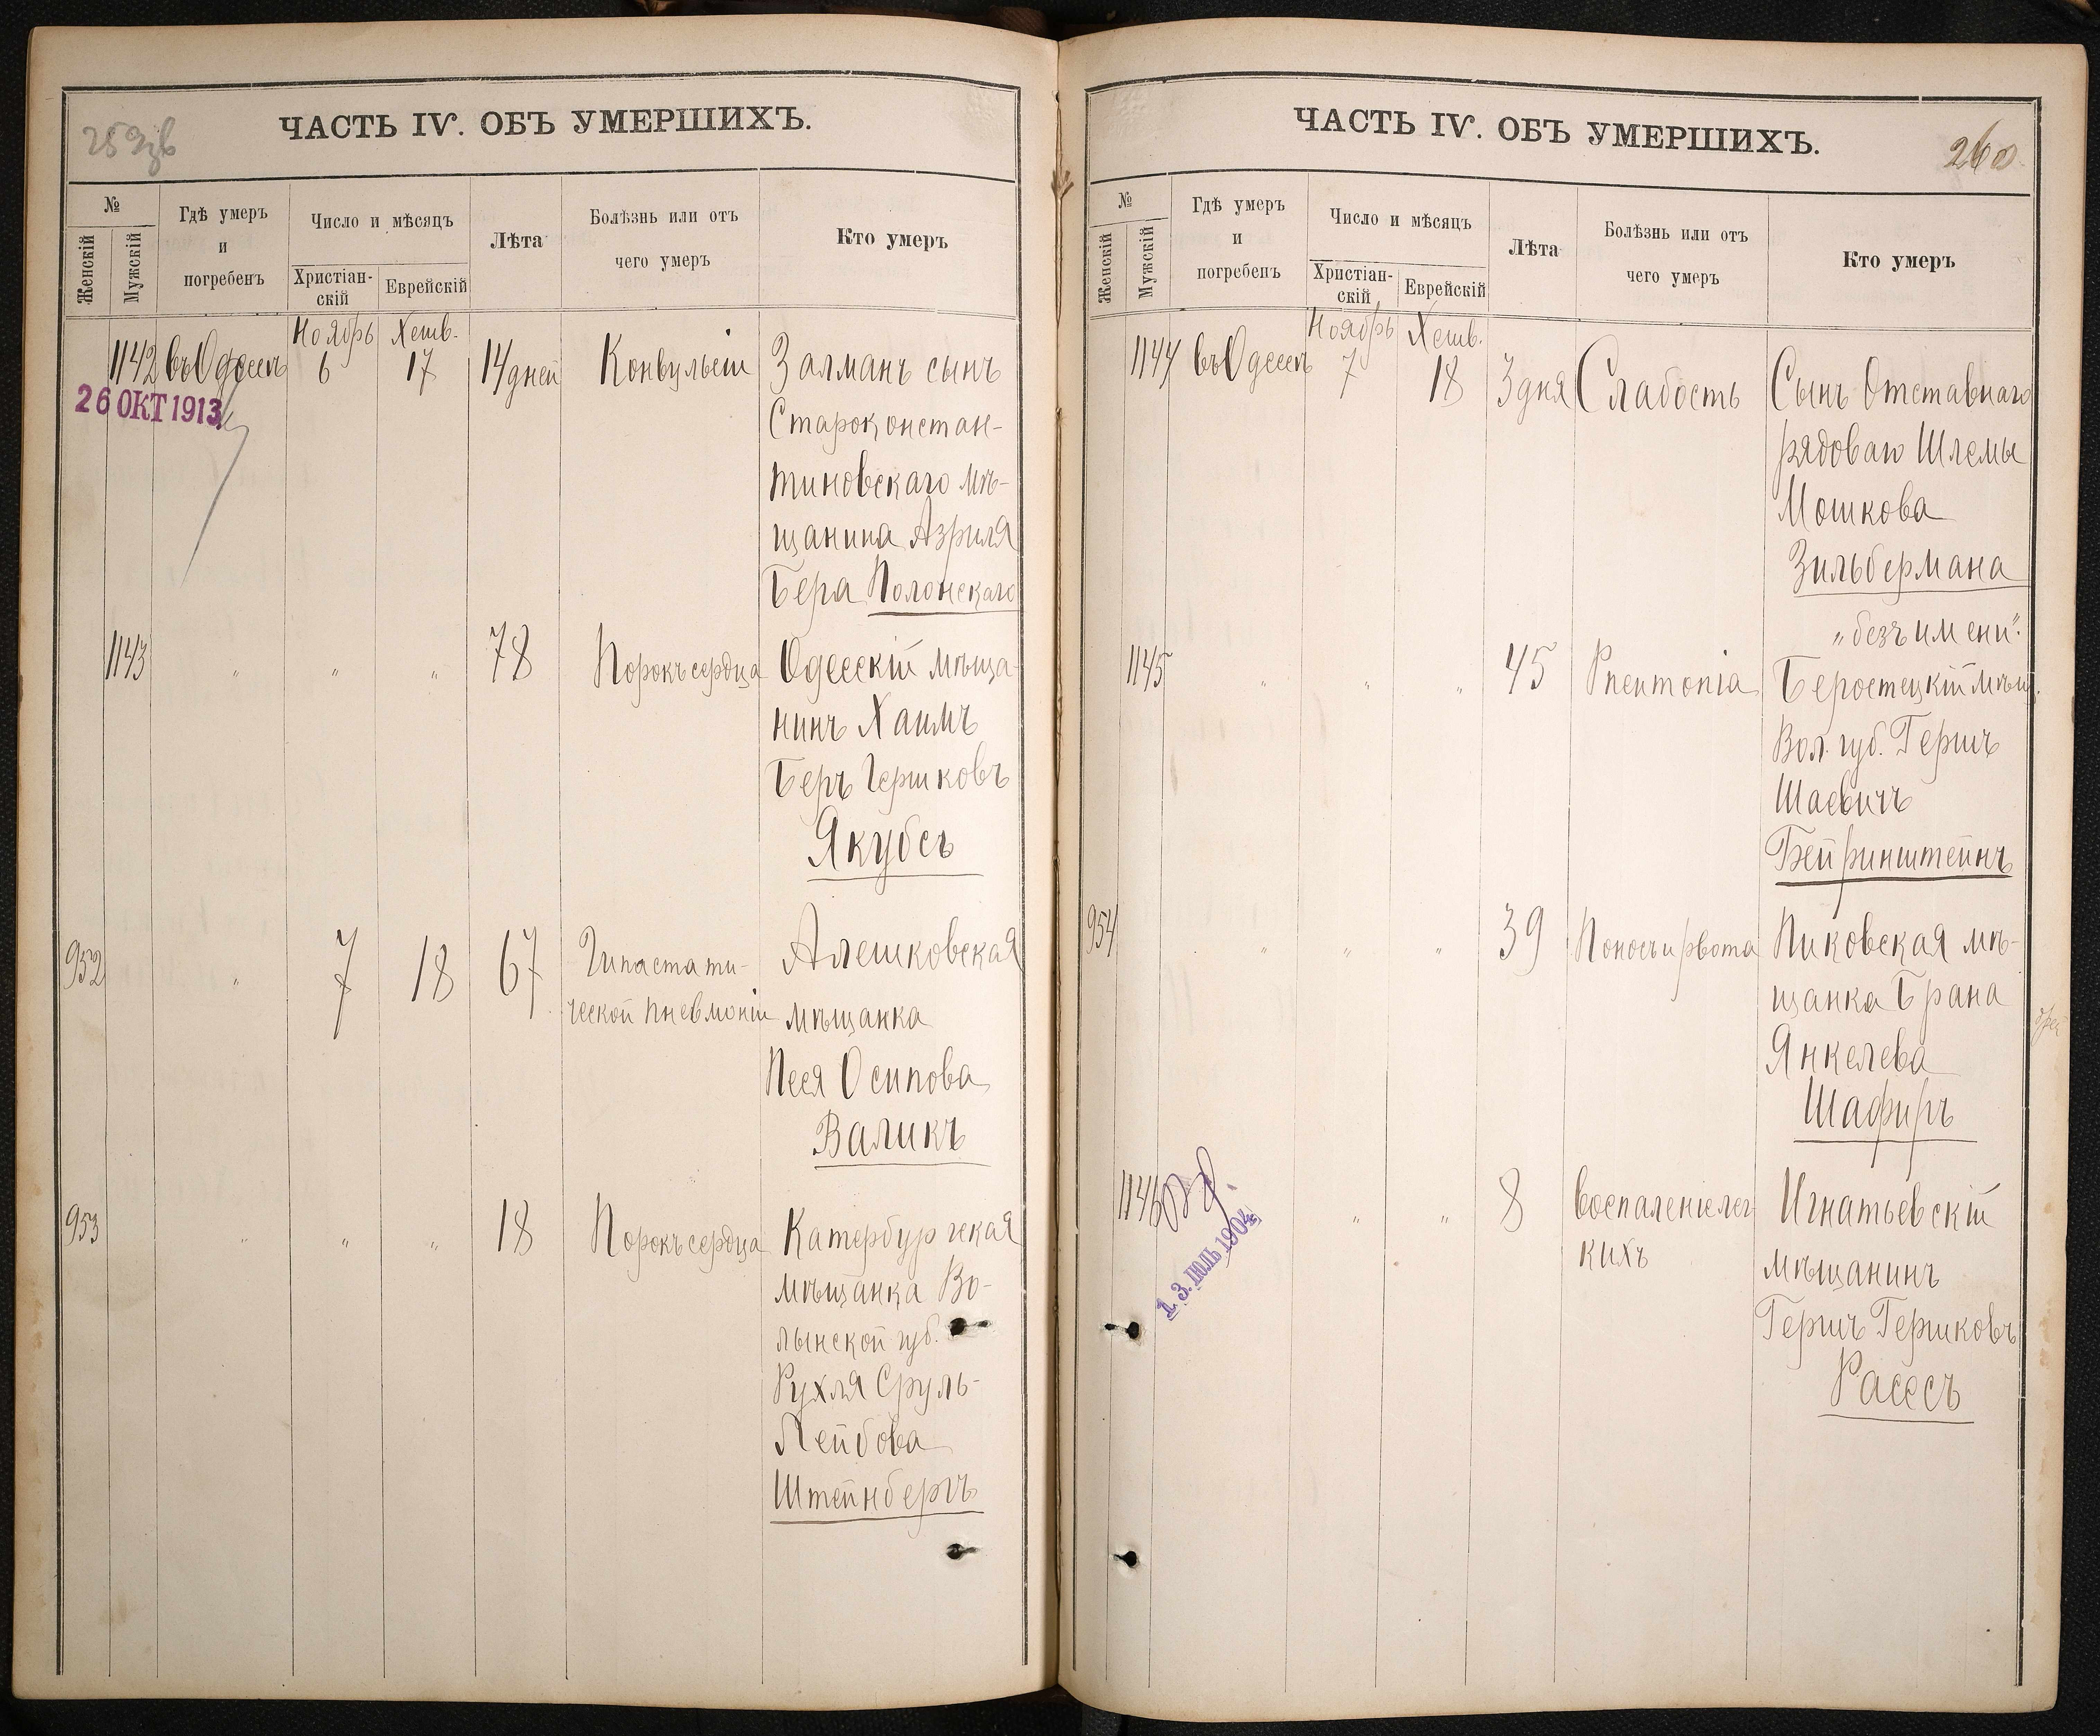 259зв
ЧАСТЬ IV. ОБЪ УМЕРШИХЪ.
№
Женскій
Мужскій
Гдѣ умеръ
и
погребенъ
Число и мѣсяцъ
Христіан-
скій
Еврейскій
Лѣта
Болѣзнь или отъ
чего умеръ
Кто умеръ
Ноябрь Хешв.
1142 въ Одессѣ 6 17 14 дней Конвульсіи Залманъ сынъ
26 ОКТ 1913
Староконстан-
тиновскаго мѣ-
щанина Азриля
Бера Полонскаго
1143 " " " 78 Порокъ сердца Одесскій мѣща-
нинъ Хаимъ
Беръ Гершковъ
Якубсъ
952 " 7 18 67 Гипастати- Алешковская
ческой пневмоніи мѣщанка
Песя Осипова
Валикъ
953 " " " 18 Порокъ сердца Катербургская
мѣщанка Во-
лынской губ.
Рухля Сруль-
Лейбова
Штейнбергъ
ЧАСТЬ IV. ОБЪ УМЕРШИХЪ.
260
№
Женскій
Мужскій
Гдѣ умеръ
и
погребенъ
Число и мѣсяцъ
Христіан-
скій
Еврейскій
Лѣта
Болѣзнь или отъ
чего умеръ
Кто умеръ
Ноябрь Хешв.
1144 въ Одессѣ 7 18 3 дня Слабость Сынъ Отставнаго
рядоваго Шлемы
Мошкова
Зильбермана
"безъ имени".
1145 " " " 45 Pneumonia Беростецкій мѣщ.
Вол. губ. Гершъ
Шаевичъ
954 " " " 39 Поносъ и рвота Пиковская мѣ-
щанка Брана
Янкелева
Шафиръ
1146 " " 8 Воспаленіе лег- Игнатьевскій
кихъ мѣщанинъ
13 ІЮЛЬ 1904
Гершъ Гершковъ
Расесъ